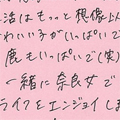 活はもっっと想像以上
わいい子がいっぱいで
鹿もいっぱいで(笑)
一緒に奈良女で
ライフをエンジョイしま